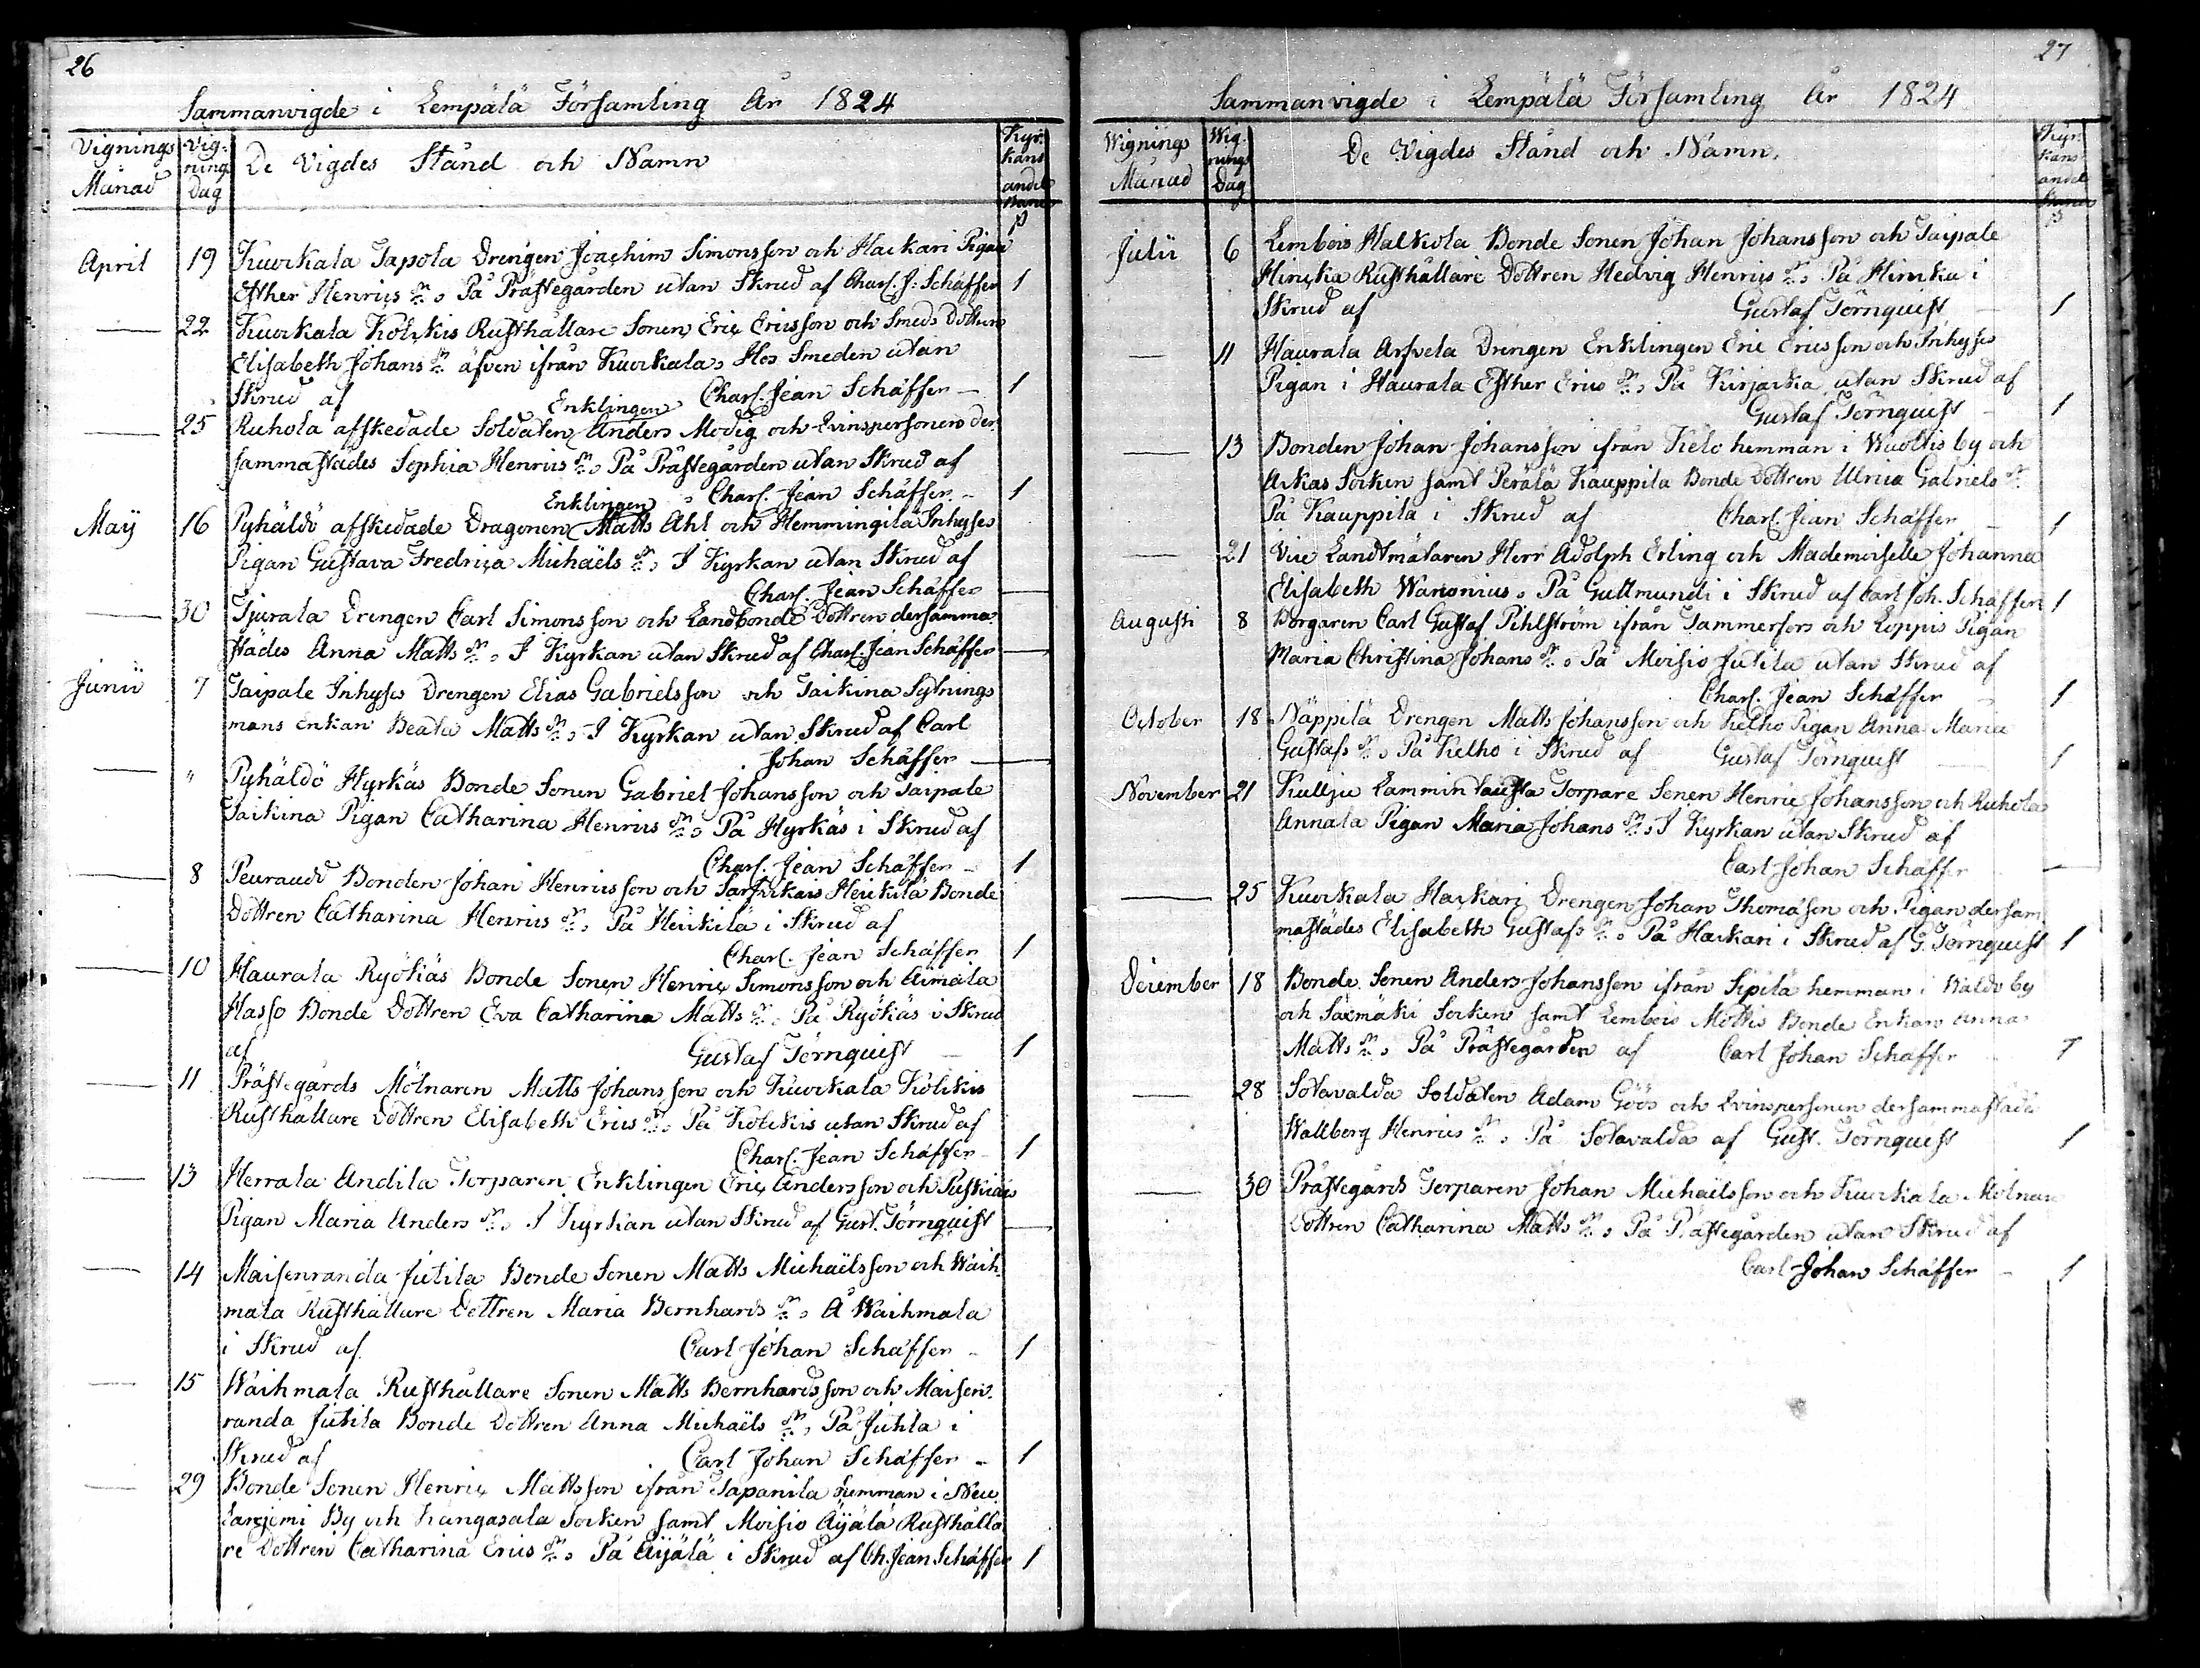 26
Sammanvigde i Lempälä Församling År 1824
Vignings Månad
Vig-
nings
Dag
De Vigdes Stånd och Namn
Kyr-
kans
andel
Banco
β
April 19 Kuokkala Tapola Drengen Joachim Simonsson och Hackari Pigan
Esther Henrics dr. På Prästegården utan Skrud af Charl. J: Schäffer 1
— 22 Kuokkala Kölckis Rusthållare Sonen Eric Ericsson och Smeds Dottren
Elisabeth Johans dr. äfven ifrån Kuokkala, Hos Smeden utan
Skrud af Charl. Jean Schäffer — 1
Enklingen
— 25 Kuhola afskedade Soldaten Anders Modig och Qvinspersonen der-
sammastädes Sophia Henrics dr. På Prästegården utan Skrud af
Charl. Jean Schäffer — 1
Enklingen
Maÿ 16 Pyhäldö afskedade Dragonen Matts Ahl och Hemmingilä Inhyses
Pigan Gustava Fredrica Michaëls dr. I Kyrkan utan Skrud af
Charl. Jean Schäffer —
— 30 Tjurala Drengen Carl Simonsson och Landbonde Dottren dersamma-
städes Anna Matts dr. I Kyrkan utan Skrud af Charl. Jean Schäffer —
Junii 7 Taipale Inhyses Drengen Elias Gabrielsson och Taikina Sytnings
mans Enkan Beata Matts dr. I Kyrkan utan Skrud af Carl
Johan Schäffer —
— " Pyhäldö Hyrkäs Bonde Sonen Gabriel Johansson och Taipale
Taikina Pigan Catharina Henrics dr. På Hyrkäs i Skrud af
Charl. Jean Schäffer — 1
— 8 Peuraudo Bonden Johan Henricsson och Sarfvikais Heickilä Bonde
Dottren Catharina Henrics dr. På Heickilä i Skrud af
Charl. Jean Schäffer 1
— 10 Haurala Ryökäs Bonde Sonen Henric Simonsson och Aimala
Hasso Bonde Dottren Eva Catharina Matts dr. På Ryökäs i Skrud
af Gustaf Törnquist — 1
— 11 Prästegårds Mölnaren Matts Johansson och Kuokkala Kölckis
Rusthållare Dottren Elisabeth Erics dr. På Kölckis utan Skrud af
Charl. Jean Schäffer — 1
— 13 Herrala Andila Torparen Enklingen Eric Andersson och Puskiais
Pigan Maria Anders dr. I Kyrkan utan Skrud af Gust. Törnquist —
— 14 Maisenranda Jutila Bonde Sonen Matts Michaëlsson och Waih-
mala Rusthållare Dottren Maria Bernhards dr. Å Waihmala
i Skrud af Carl Johan Schäffer — 1
— 15 Waihmala Rusthållare Sonen Matts Bernhardsson och Maisen-
randa Jutila Bonde Dottren Anna Michaëls dr. På Jutila i
Skrud af Carl Johan Schäffer — 1
— 29 Bonde Sonen Henric Mattsson ifrån Tapanila hemman i
By och Kangasala Socken samt Moisio Äÿälä Rusthålla-
re Dottren Catharina Erics dr. På Äijälä i Skrud af Ch. Jean Schäffer 1
27
Sammanvigde i Lempälä Församling År 1824
Wignings
Månad
Wig-
nings
Dag
De Vigdes Stånd och Namn.
Kyr-
kans
andel
Banco
β
Julii 6 Lembois Halkola Bonde Sonen Johan Johansson och Taipale
Hincka Rusthållare Dottren Hedvig Henrics dr. På Hincka i
Skrud af Gustaf Törnquist — 1
— 11 Haurala Arfvela Drengen Enklingen Eric Ericsson och Inhyses
Pigan i Haurala Esther Erics dr. På Kirjaska utan Skrud af
Gustaf Törnquist — 1
— 13 Bonden Johan Johansson ifrån Kelo hemman i Wuoltis by och
Ackas Socken samt Perälä Kauppila Bonde Dottren Ulrica Gabriels dr.
På Kauppila i Skrud af Charl. Jean Schäffer — 1
— 21 Vice Landtmätaren Herr Adolph Erling och Mademoiselle Johanna
Elisabeth Waronius. På Guttmundi i Skrud af Carl Joh. Schäffer 1
Augusti 8 Borgaren Carl Gustaf Pihlström ifrån Tammerfors och Loppis Pigan
Maria Christina Johans dr. På Moisio Jutila utan Skrud af
Charl. Jean Schäffer — 1
October 18 Näppilä Drengen Matts Johansson och Kelho Pigan Anna Maria
Gustafs dr. På Kelho i Skrud af Gustaf Törnquist — 1
November 21 Kuljju Lammintausta Torpare Sonen Henric Johansson och Kuhola
Annala Pigan Maria Johans dr. I Kyrkan utan Skrud af
Carl Johan Schäffer —
— 25 Kuokkala Hackari Drengen Johan Thomasson och Pigan dersam-
mastädes Elisabeth Gustafs dr. På Hackari i Skrud af G. Törnquist 1
December 18 Bonde Sonen Anders Johansson ifrån Sipilä hemman i Waldo by
och Saxmäki Socken samt Lembois Mottis Bonde Enkan Anna
Matts dr. På Prästegården af Carl Johan Schäffer 1
— 28 Sotavalda Soldaten Adam Göös och Qvinspersonen dersammastädes
Wallborg Henrics dr. På Sotavalda af Gust. Törnquist 1
— 30 Prästegårds Torparen Johan Michaëlsson och Kuokkala Mölnare
Dottren Catharina Matts dr. På Prästegården utan Skrud af
Carl Johan Schäffer — 1